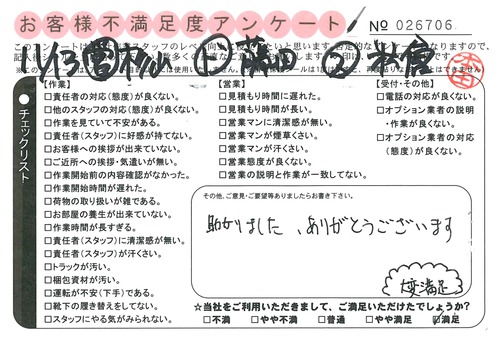 お客様不満足度アンケート
No 026706
11/13
【作業】
□責任者の対応(態度)が良くない。
□他のスタッフの対応(態度)が良くない。
□作業を見ていて不安がある。
□責任者(スタッフ)に好感が持てない。
□お客様への挨拶が出来ていない。
□ご近所への挨拶・気遣いが無い。
□作業開始前の内容確認がなかった。
□作業開始時間が遅れた。
□荷物の取り扱いが雑である。
□お部屋の養生が出来ていない。
□作業時間が長すぎる。
□責任者(スタッフ)に清潔感が無い。
□責任者(スタッフ)が汗くさい。
□トラックが汚い。
□梱包資材が汚い。
□運転が不安(下手)である。
□靴下の履き替えをしてない。
□スタッフにやる気がみられない。
チェックリスト
【営業】
□見積もり時間に遅れた。
□見積もり時間が長い。
□営業マンに清潔感が無い。
□営業マンが煙草くさい。
□営業マンが汗くさい。
□営業態度が良くない。
□営業の説明と作業が一致してない。
【受付・その他】
□電話の対応が良くない。
□オプション業者の説明
・作業が良くない。
□オプション業者の対応
(態度)が良くない。
その他、ご意見・ご要望等ありましたらお書き下さい。
助かりました、ありがとうございます
大変満足
☆当社をご利用いただきまして、ご満足いただけたでしょうか?
□不満 □やや不満 □普通 □やや満足 ☑満足